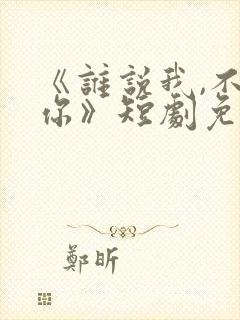 《誰説我,不
你》短劇免
鄭昕